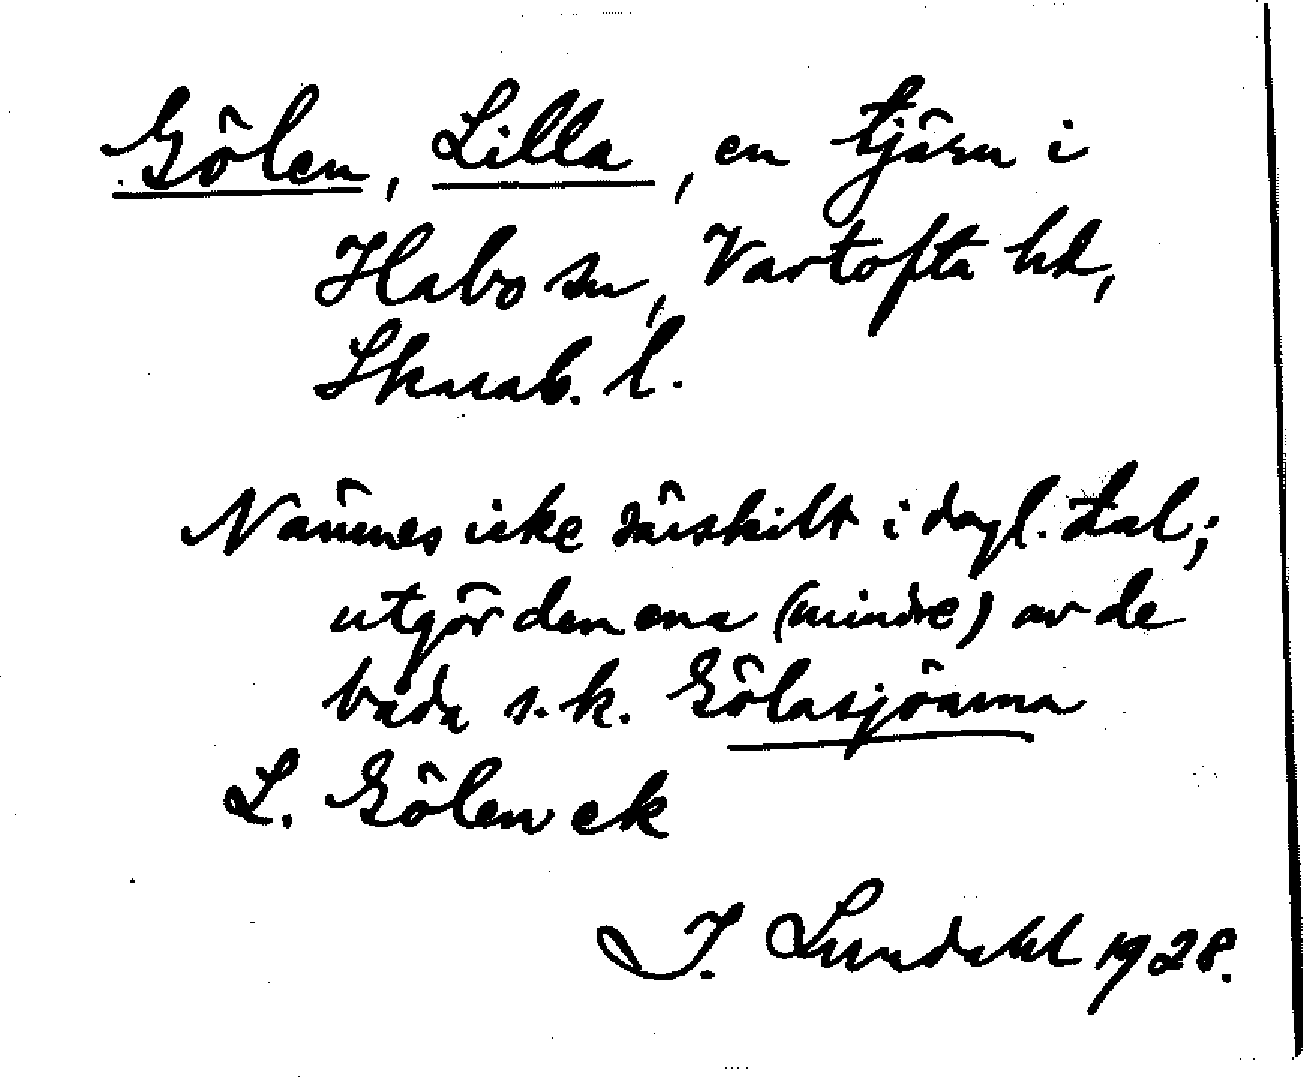 Gölen, Lilla, en tjärn i
Habo sn, Vartofta hd,
Skarab. l.
Nämnes icke särskilt i dagl. tal;
utgör den ena (mindre) av de
båda s.k. Gölasjöarna
L. Gölen ek
I. Lundahl 1928.